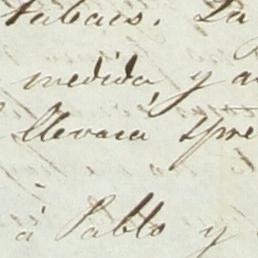 tabaco. La
medida, y a
llevará spre
à Pablo y